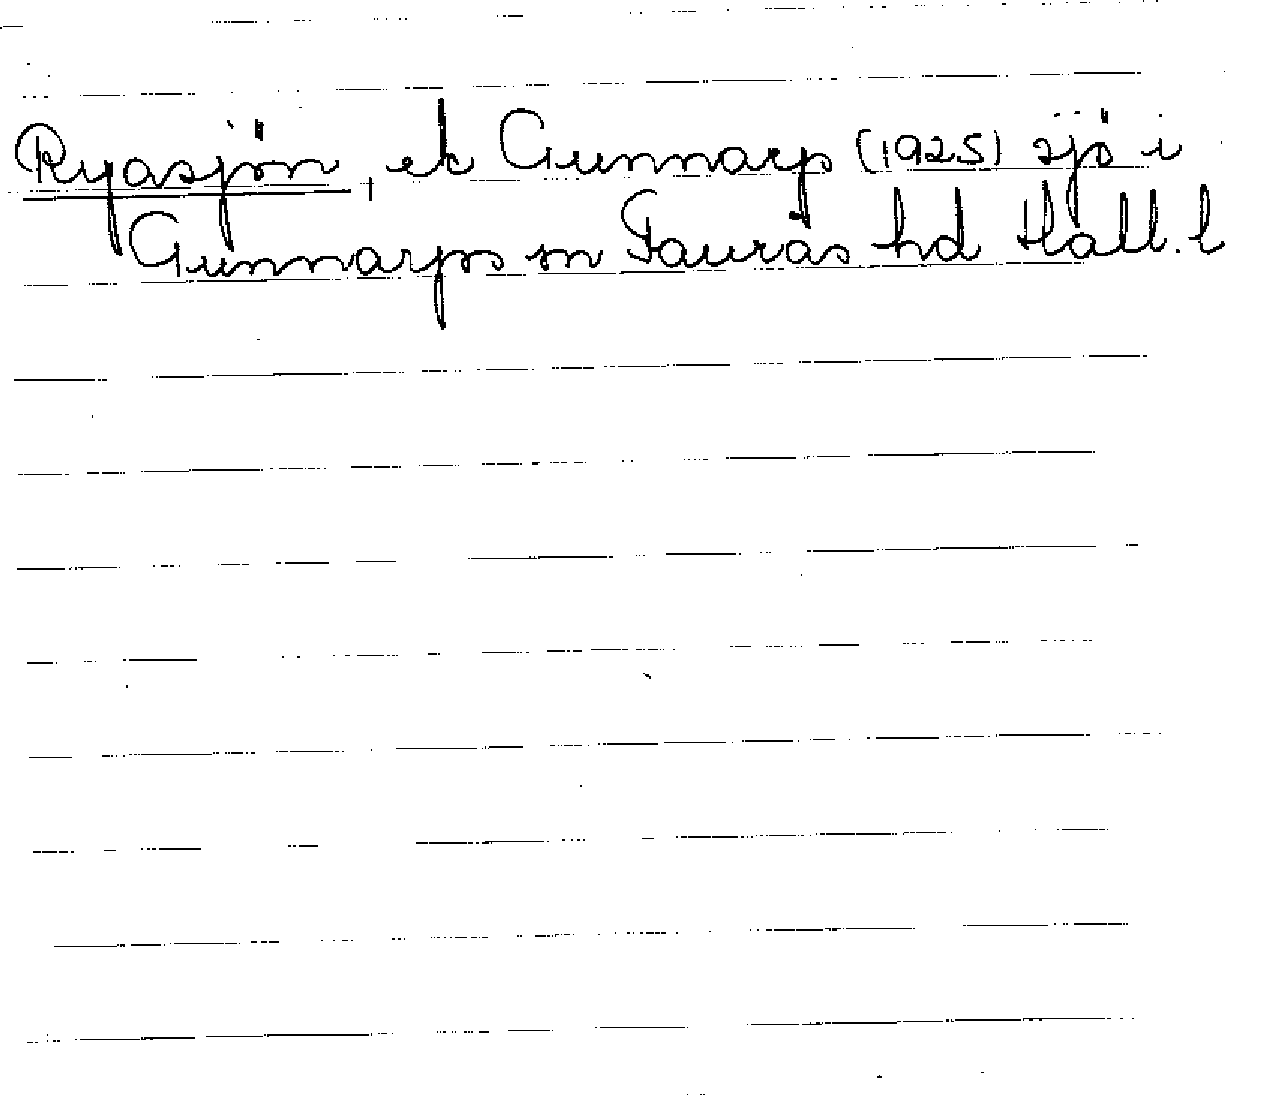 Ryasjön, ek Gunnarp (1925) sjö i
Gunnarps sn Faurås hd Hall. l